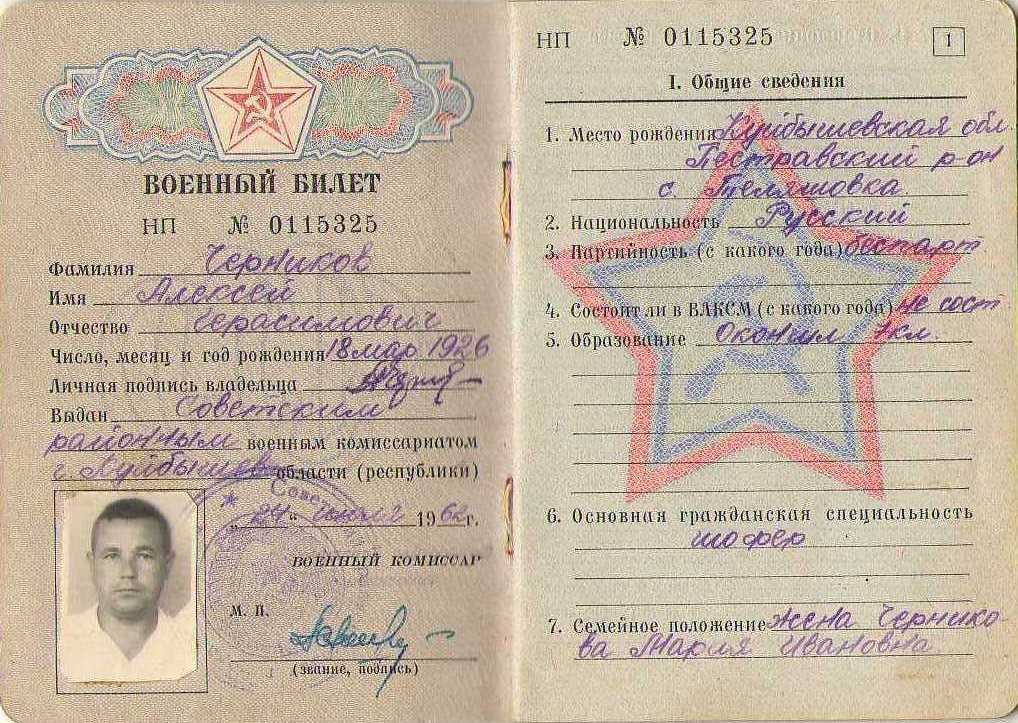 ВОЕННЫЙ БИЛЕТ
НП № 0115325
Фамилия Черников
Имя Алексей
Отчество Герасимович
Число, месяц и год рождения 18 мар 1926
Личная подпись владельца
Выдан Советским
районным военным комиссариатом
г. Куйбышев области (республики)
Совет
„24“ 1962г.
ВОЕННЫЙ КОМИССАР
М. П.
(звание, подпись)
НП № 0115325
1
I. Общие сведения
1. Место рождения Куйбышевская обл.
Пестравский р-он
с. Теляшовка.
2. Национальность Русский
3. Партийность (с какого года) беспарт
4. Состоит ли в ВЛКСМ (с какого года) не сост
5. Образование Окончил кл.
6. Основная гражданская специальность
шофер
7. Семейное положение Жена Чернико
ва Мария Ивановна.